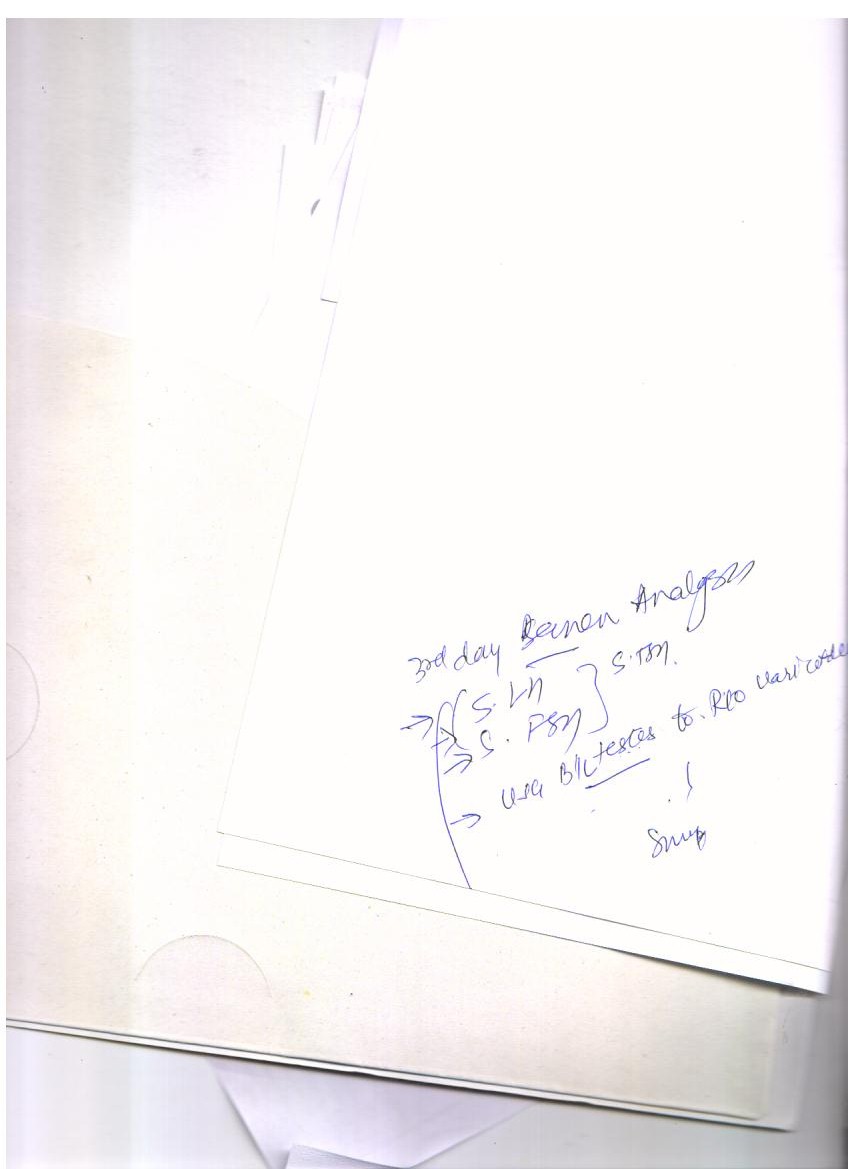 3rd day Semen Analysis
S. LH
S. FSH } S. TSH.
USG B/L testes to R/O varicocele